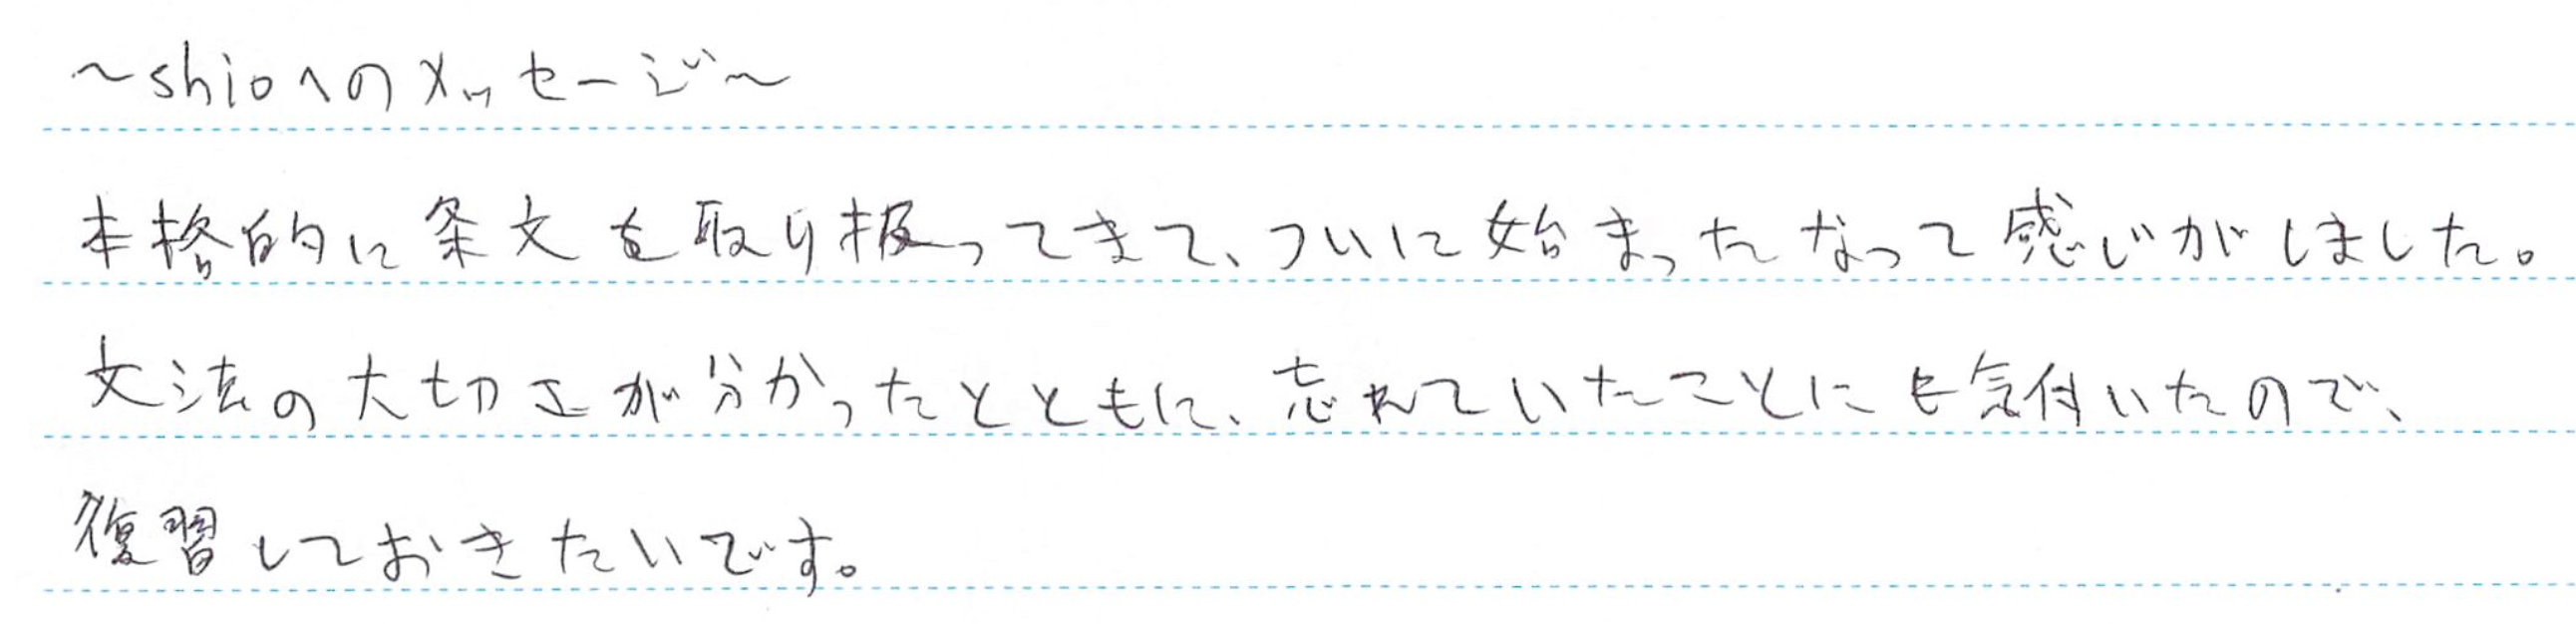 ～shioへのメッセージ～
本格的に条文を取り扱ってきて、ついに始まったなって感じがしました。
文法の大切さが分かったとともに、忘れていたことにも気付いたので、
復習しておきたいです。